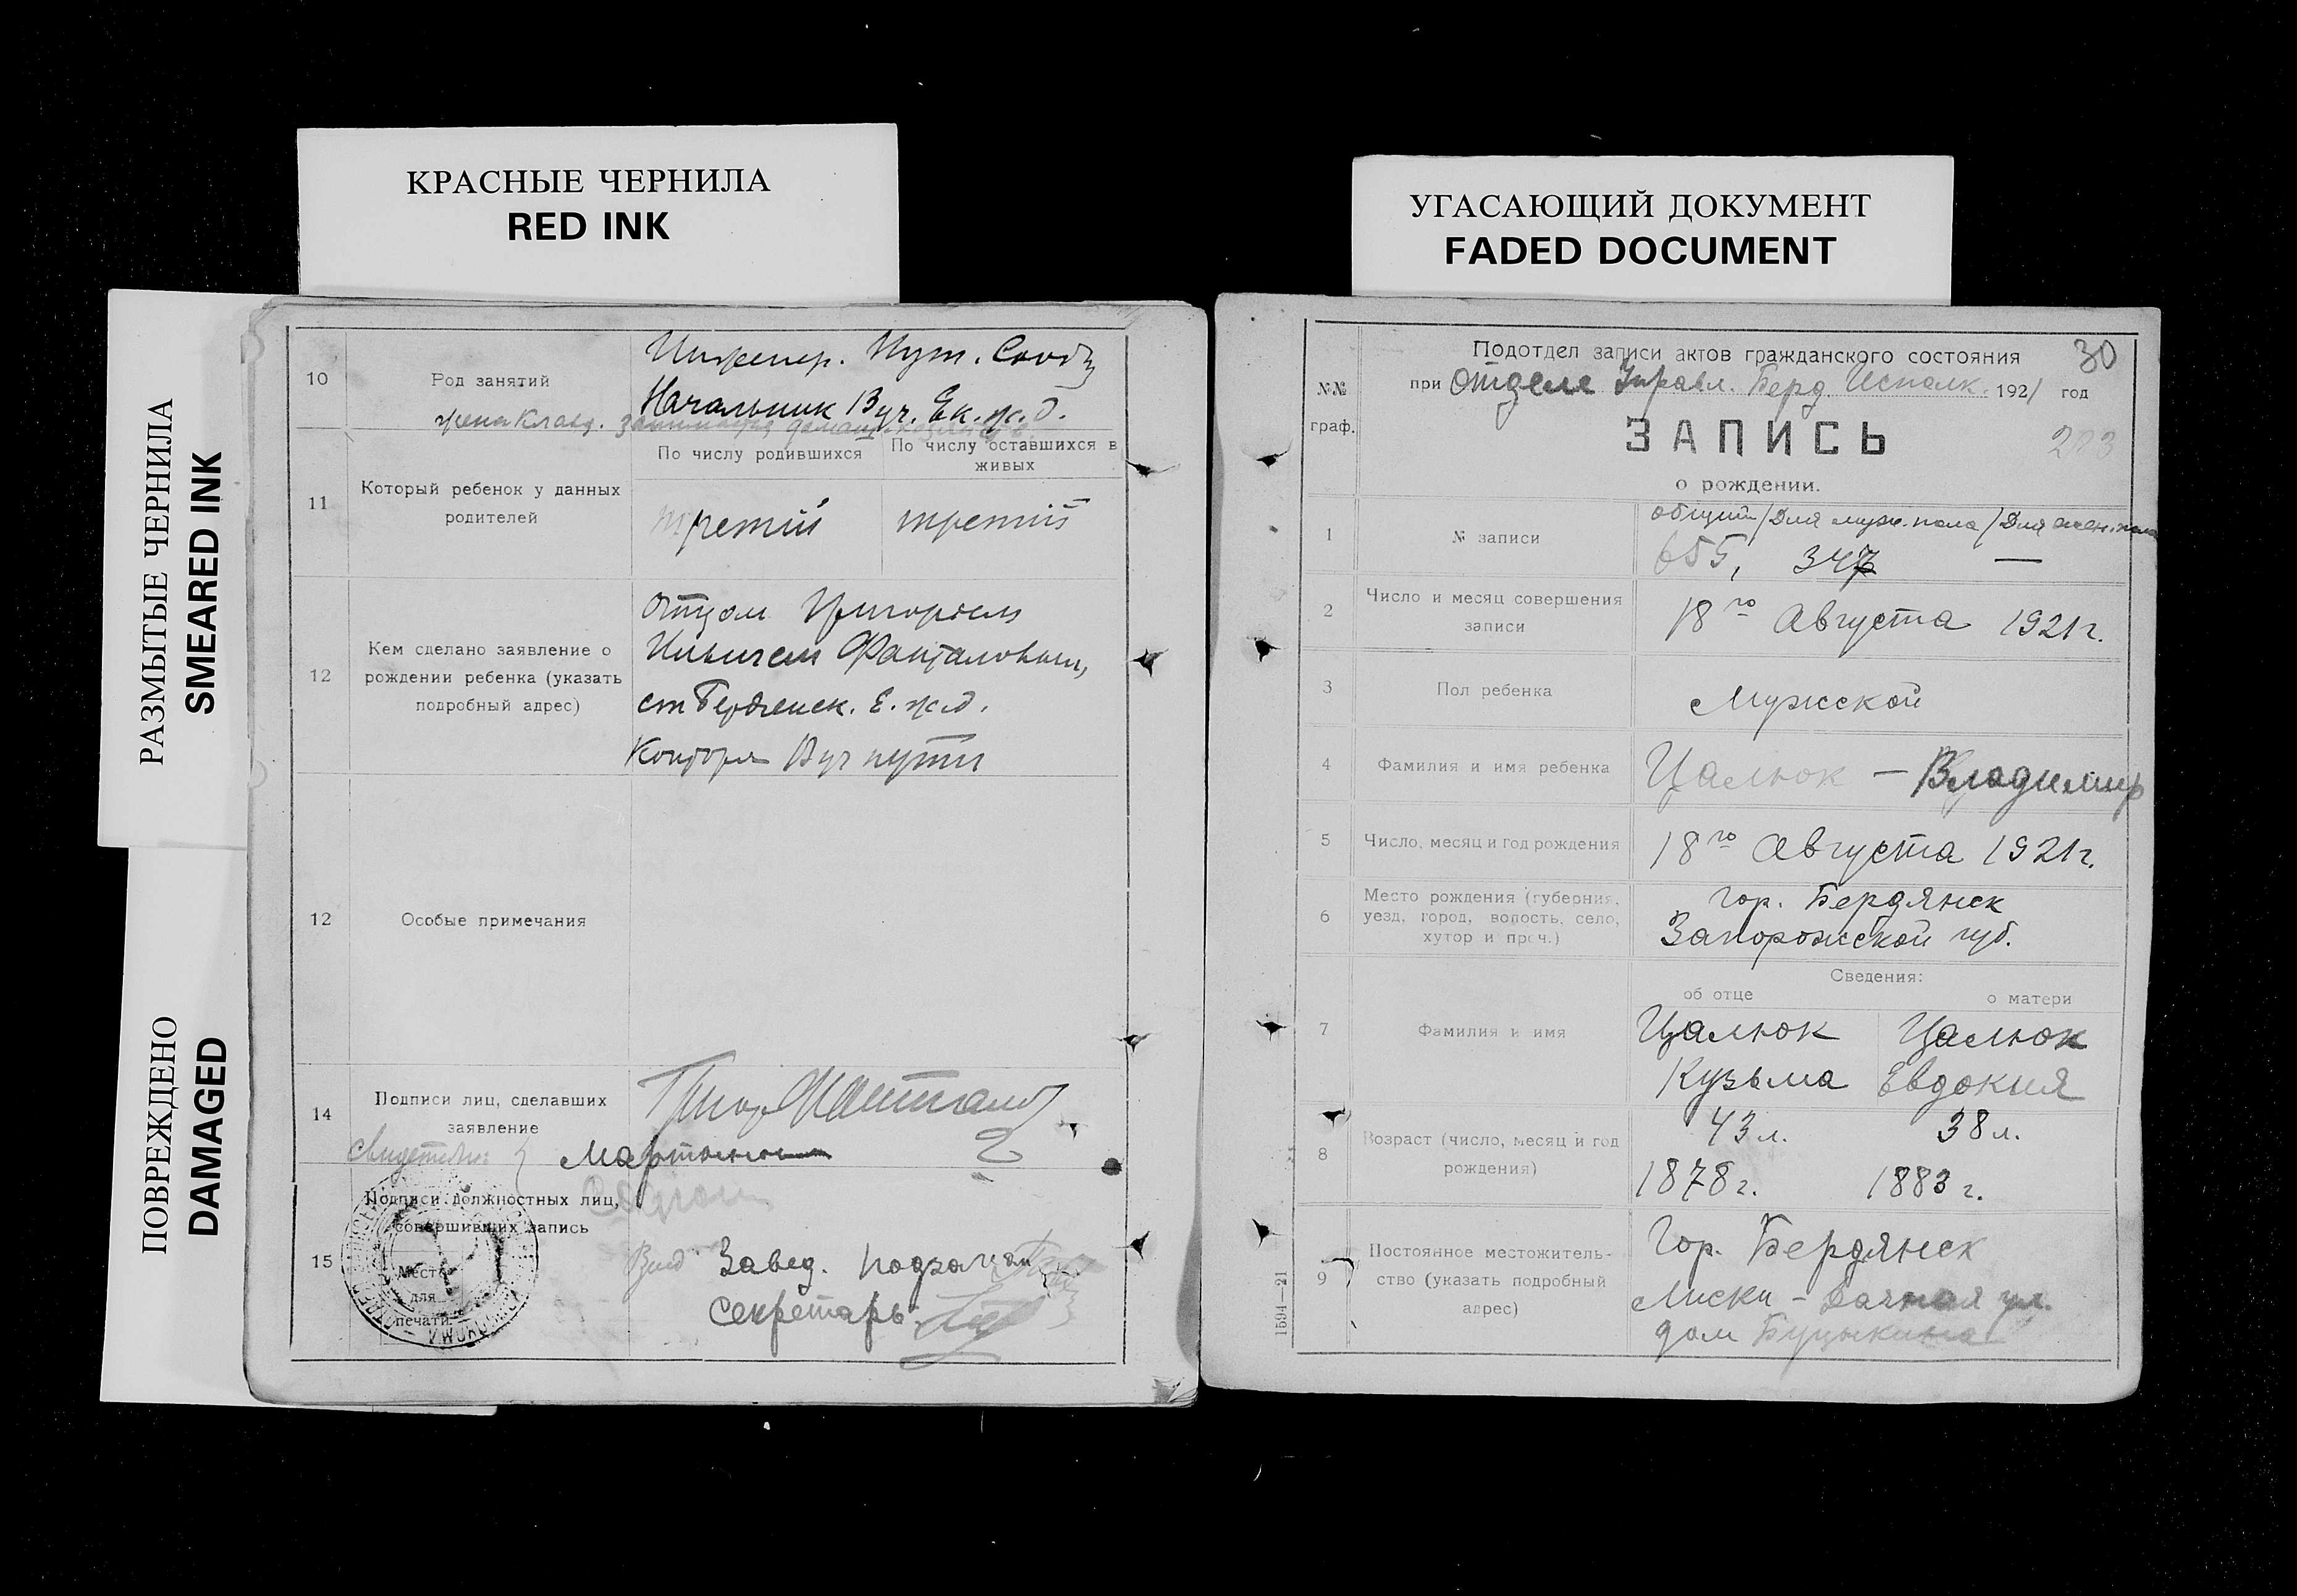 КРАСНЫЕ ЧЕРНИЛА
RED INK
УГАСАЮЩИЙ ДОКУМЕНТ
FADED DOCUMENT
РАЗМЫТЫЕ ЧЕРНИЛА
SMEARED INK
ПОВРЕЖДЕНО
DAMAGED
10
Род занятий
Инженер. Пут. Сообщ
Начальник В уч. Ек. ж. д.
жена Клавд. занимается домаш.
11
Который ребенок у данных
родителей
По числу родившихся
По числу оставшихся в
живых
третий
третий
12
Кем сделано заявление о
рождении ребенка (указать
подробный адрес)
Отцом Григорием
Ильичем
ст Бердянск. Е. ж. д.
Контора В уч пути
12
Особые примечания
14
Подписи лиц, сделавших
заявление
Григ
свидетели:
15
Подписи должностных лиц,
совершивших запись
Место
для
печати.
Завед. подзагсом
Секретарь:
30
Подотдел записи актов гражданского состояния
№№
граф.
при Отделе Управл. Берд. Исполк. 1921 год
ЗАПИСЬ
203
о рождении.
1
№ записи
общий / Для муж. пола / Для жен. пола
655, 347 —
2
Число и месяц совершения
записи
18го Августа 1921 г.
3
Пол ребенка
Мужской
4
Фамилия и имя ребенка
Цалюк — Владимир
5
Число, месяц и год рождения
18го Августа 1921 г.
6
Место рождения (губерния,
уезд, город, волость, село,
хутор и проч.)
гор. Бердянск
Запорожской губ.
Сведения:
об отце
о матери
7
Фамилия и имя
Цалюк
Кузьма
Цалюк
Евдокия
8
Возраст (число, месяц и год
рождения)
43 л.
38 л.
1878 г.
1883 г.
9
Постоянное местожитель-
ство (указать подробный
адрес)
Гор. Бердянск
Лиски – Дачная ул.
дом
1594—21